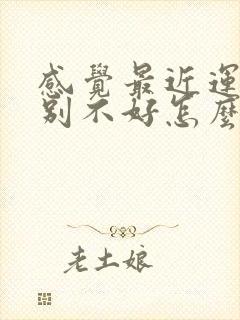 感覺最近運
別不好怎麼
老土娘